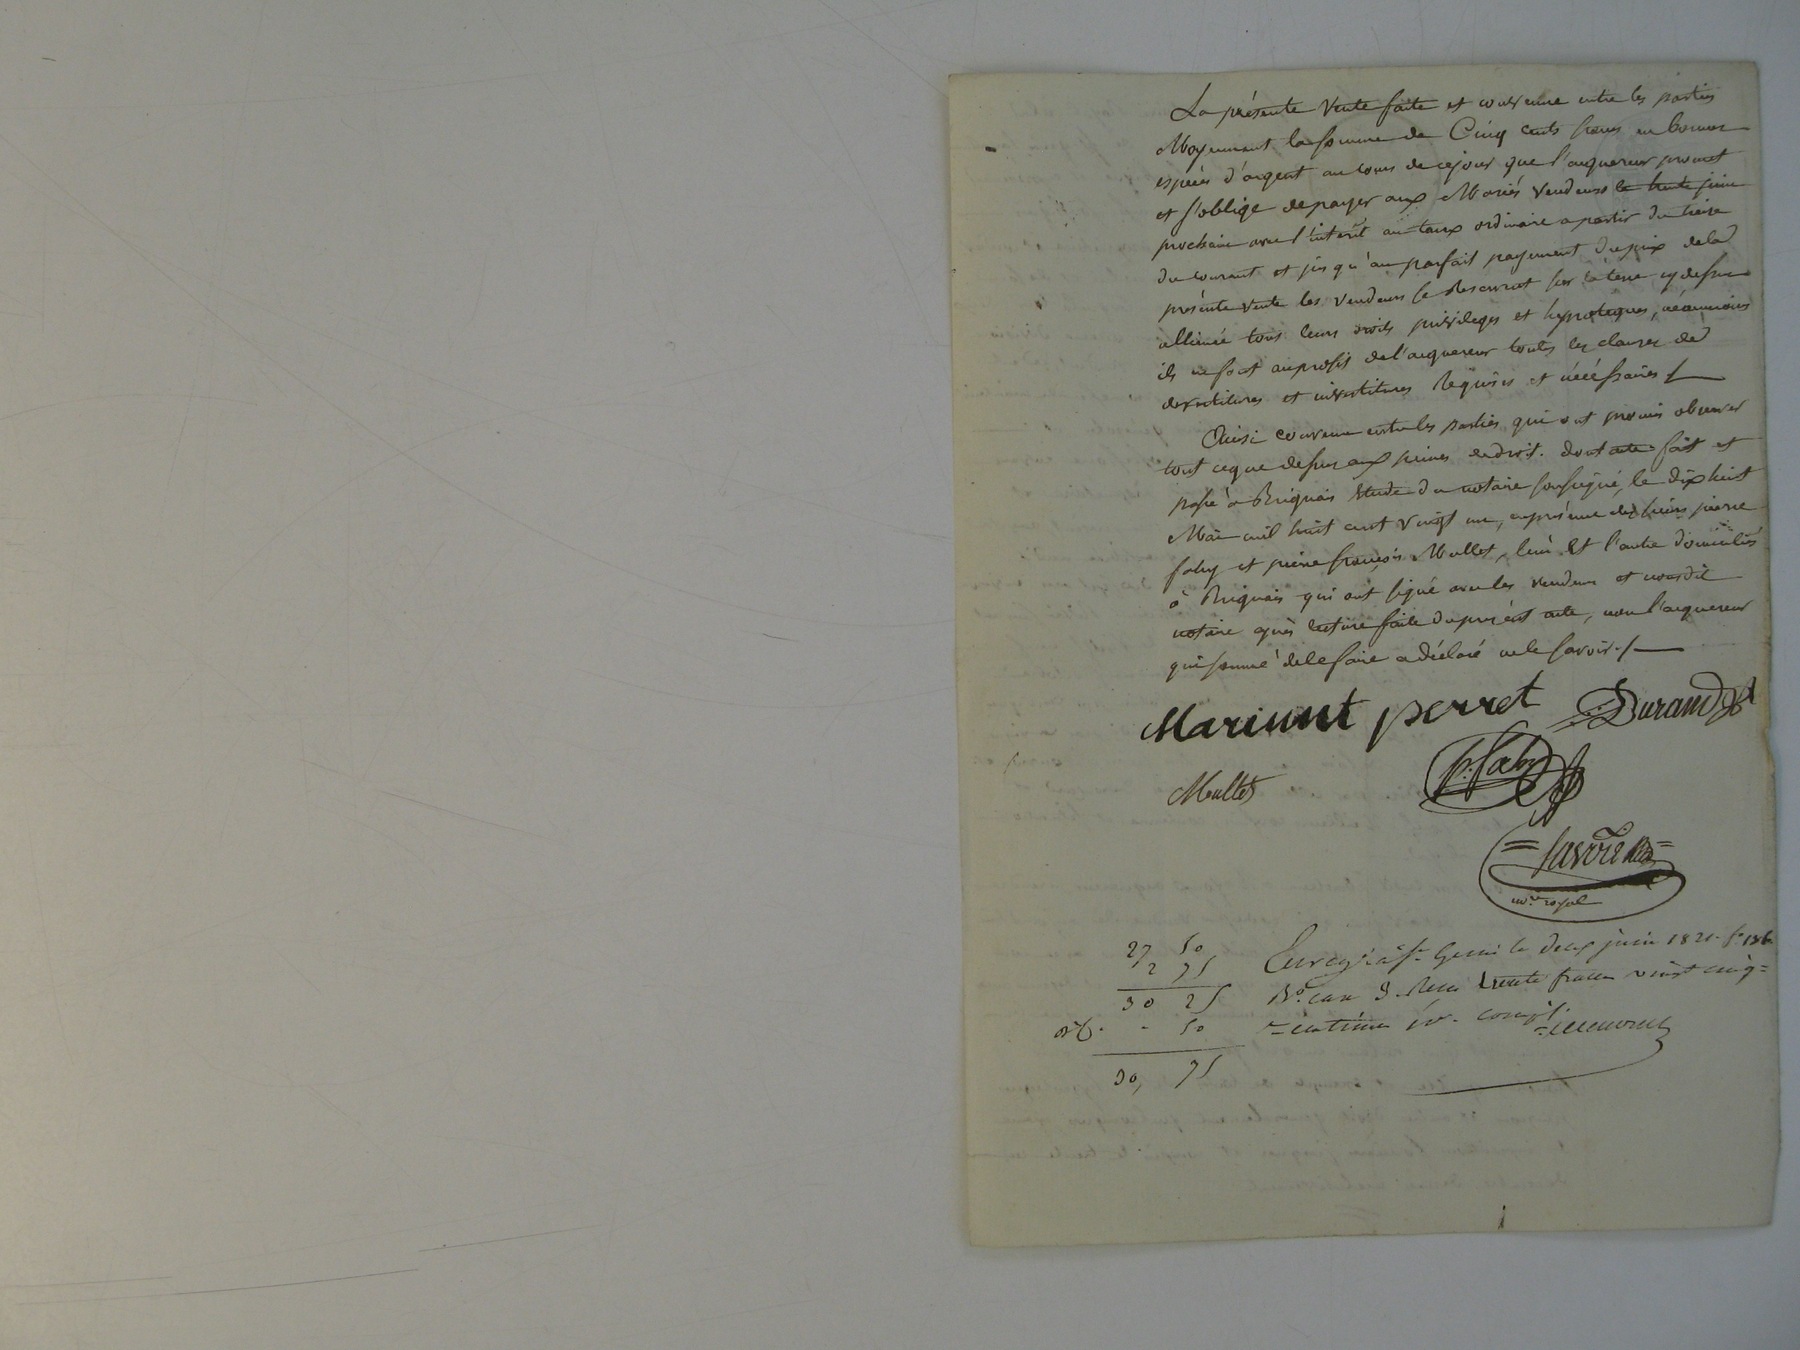 La présente Vente faite et convenue entre les parties
Moyennant la somme de Cinq cents francs en bonnes
espèces d'argent au cours de ce jour que l'acquereur promet
et s'oblige de payer aux Mariés Vendeurs le trente juin
prochain avec l'interêt au taux ordinaire a partir du treize
du courant et jusqu'au parfait payement du prix de la
présente vente les vendeurs se Reservent sur la terre cy dessus
alliénée tous leurs droits privileges et hypoteques, néanmoins
ils se font au profit de l'acquereur toutes les clauses de
devetitures et investitures Requises et nécéssaires /
Ainsi convenu entre les parties qui ont promis observer
tout ce que dessus aux peines de droit. dont acte fait et
passé à Brignais Etude du notaire soussigné, le dix huit
Mai mil huit cent vingt un, en présence des sieurs pierre
faby et pierre françois Mullet, l'un Et l'autre domiciliés
à Brignais qui ont signé avec les vendeurs et nous dit
notaire après lecture faite du présent acte, non l'acquereur
qui sommé de le faire a déclaré ne le savoir ./
perret Durand
Mullet p. faby
no.re royal
27 50
2 75
30 25
- 50
30, 75
Enregé à St Genis le deux juin 1821. fo 136
Vo case 3. Reçu trente francs vingt cinq
centimes compt.